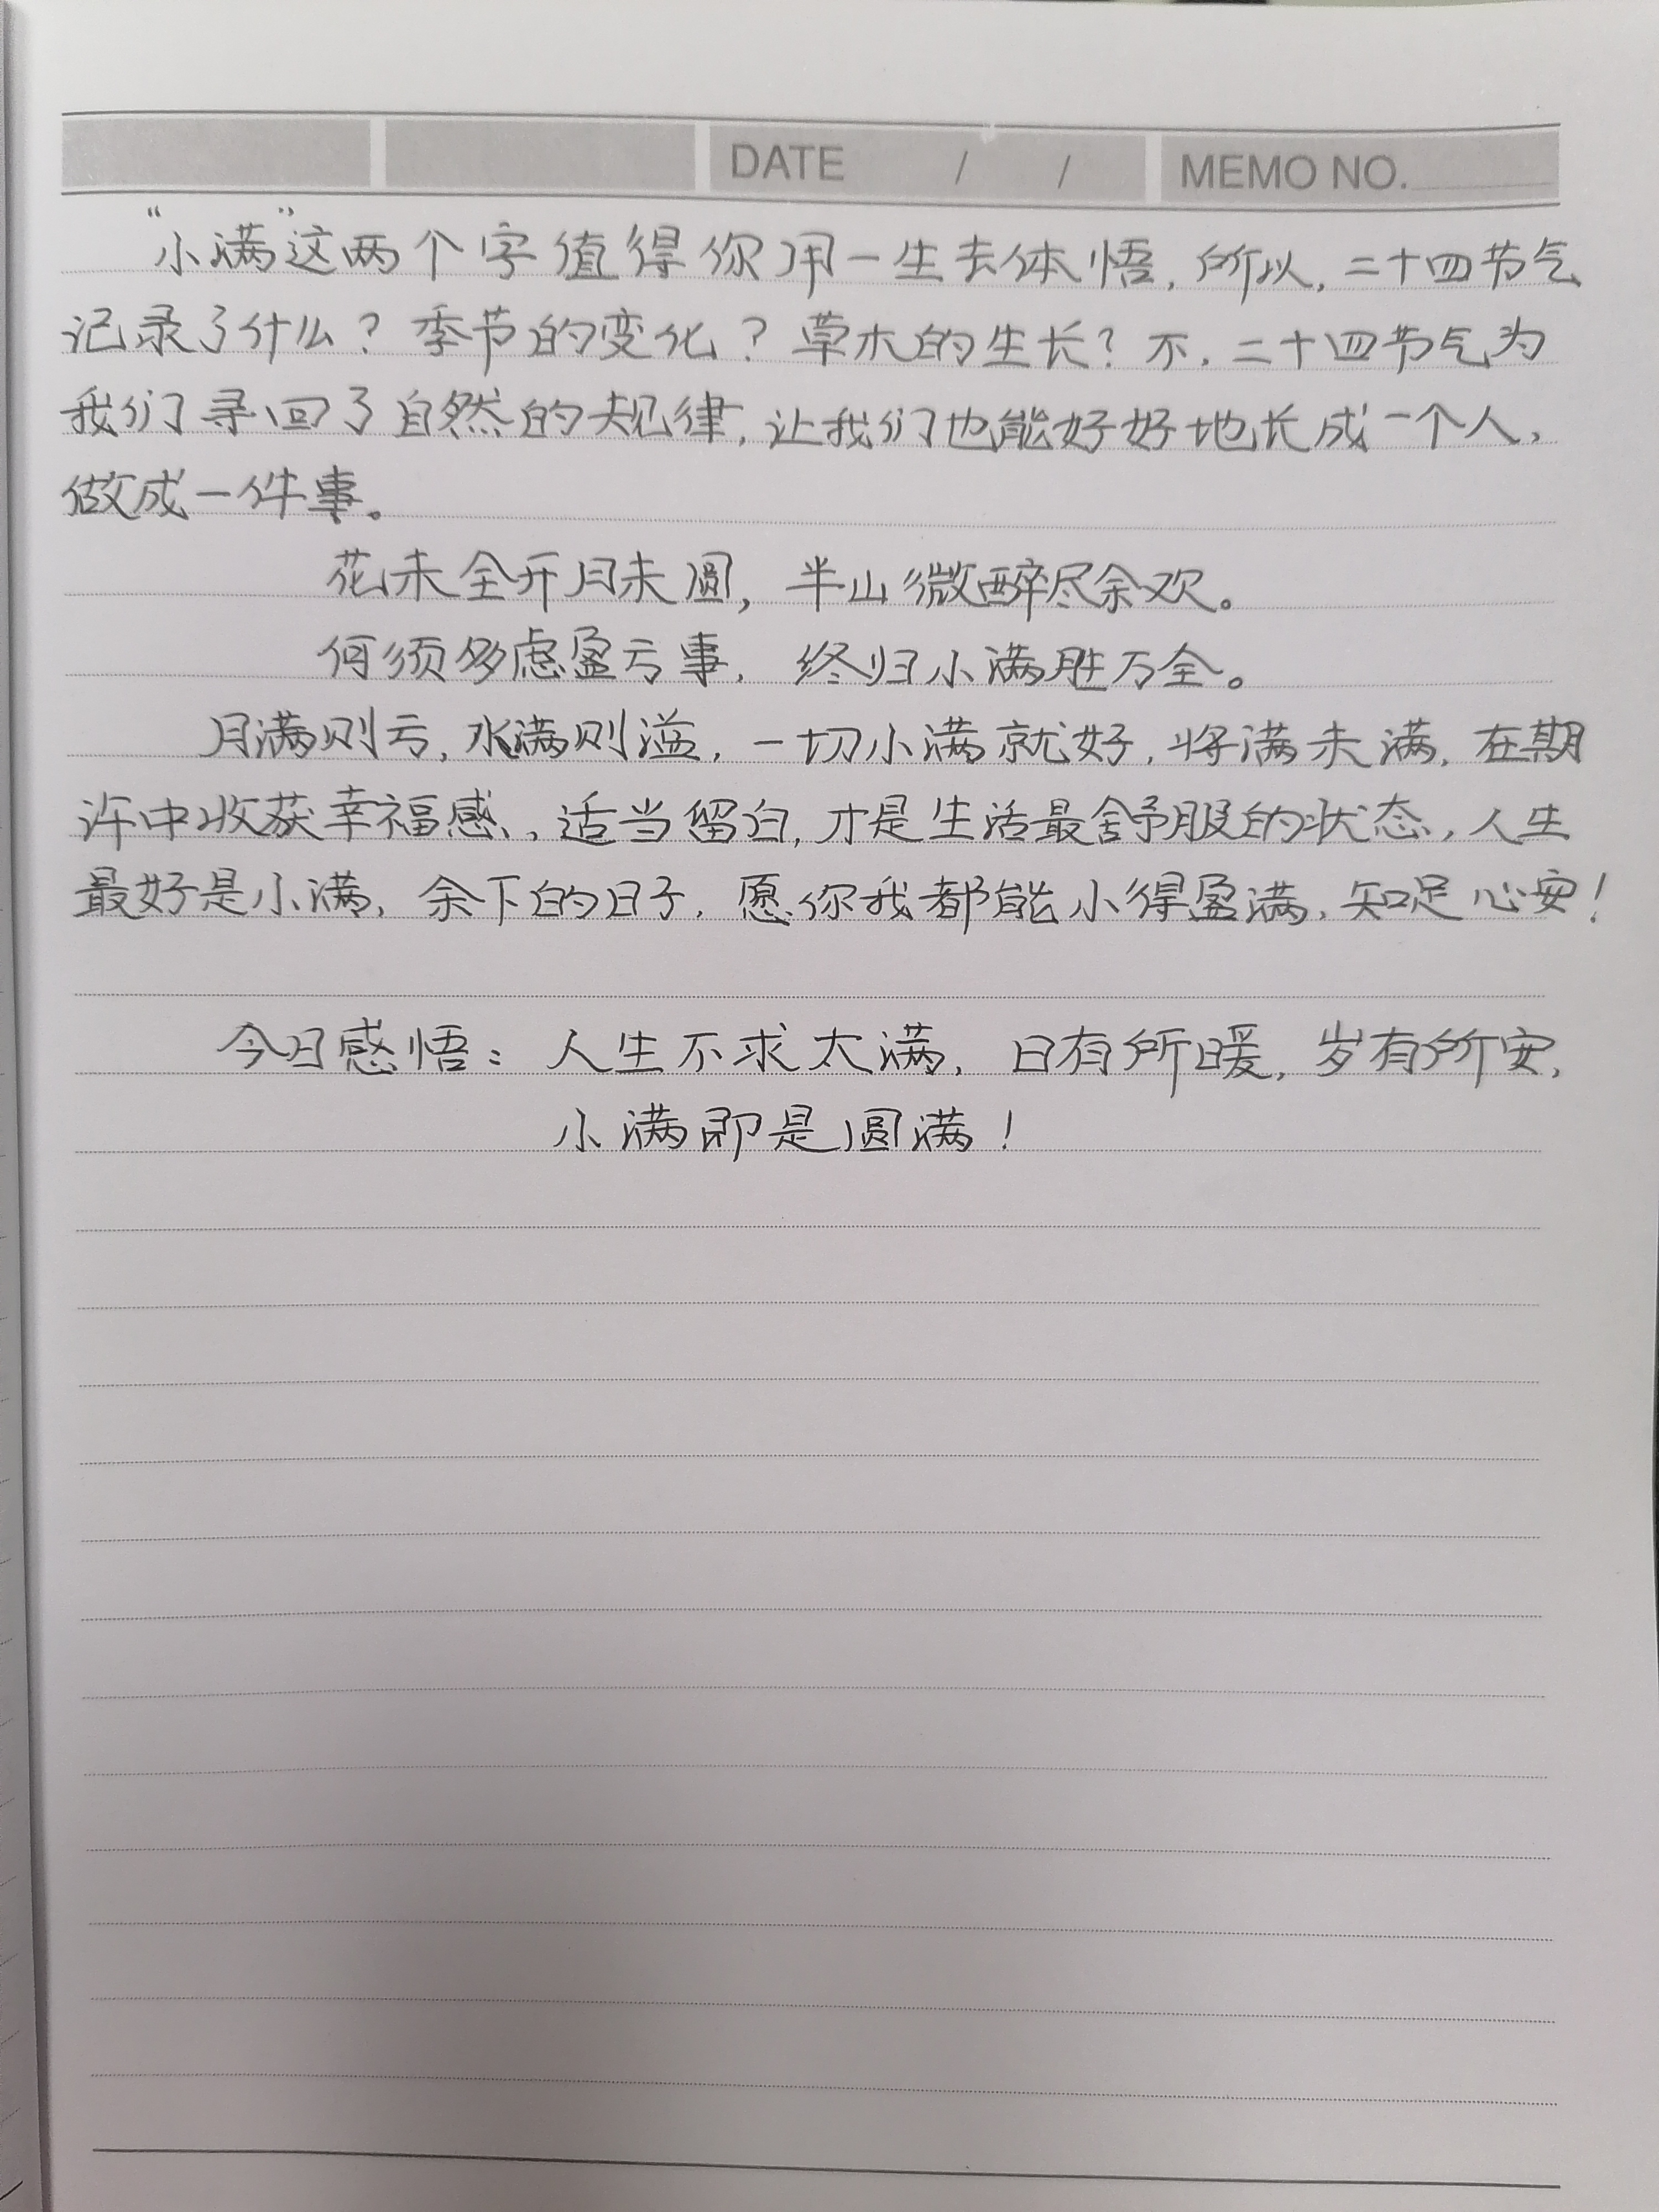 DATE / / MEMO NO.
“小满”这两个字值得你用一生去体悟，所以，二十四节气
记录了什么？季节的变化？草木的生长？不，二十四节气为
我们寻回了自然的规律，让我们也能好好地长成一个人，
做成一件事。
花未全开月未圆，半山微醉尽余欢。
何须多虑盈亏事，终归小满胜万全。
月满则亏，水满则溢，一切小满就好，将满未满，在期
许中收获幸福感，适当留白，才是生活最舒服的状态，人生
最好是小满，余下的日子，愿你我都能小得盈满，知足心安！
今日感悟：人生不求太满，日有所暖，岁有所安，
小满即是圆满！